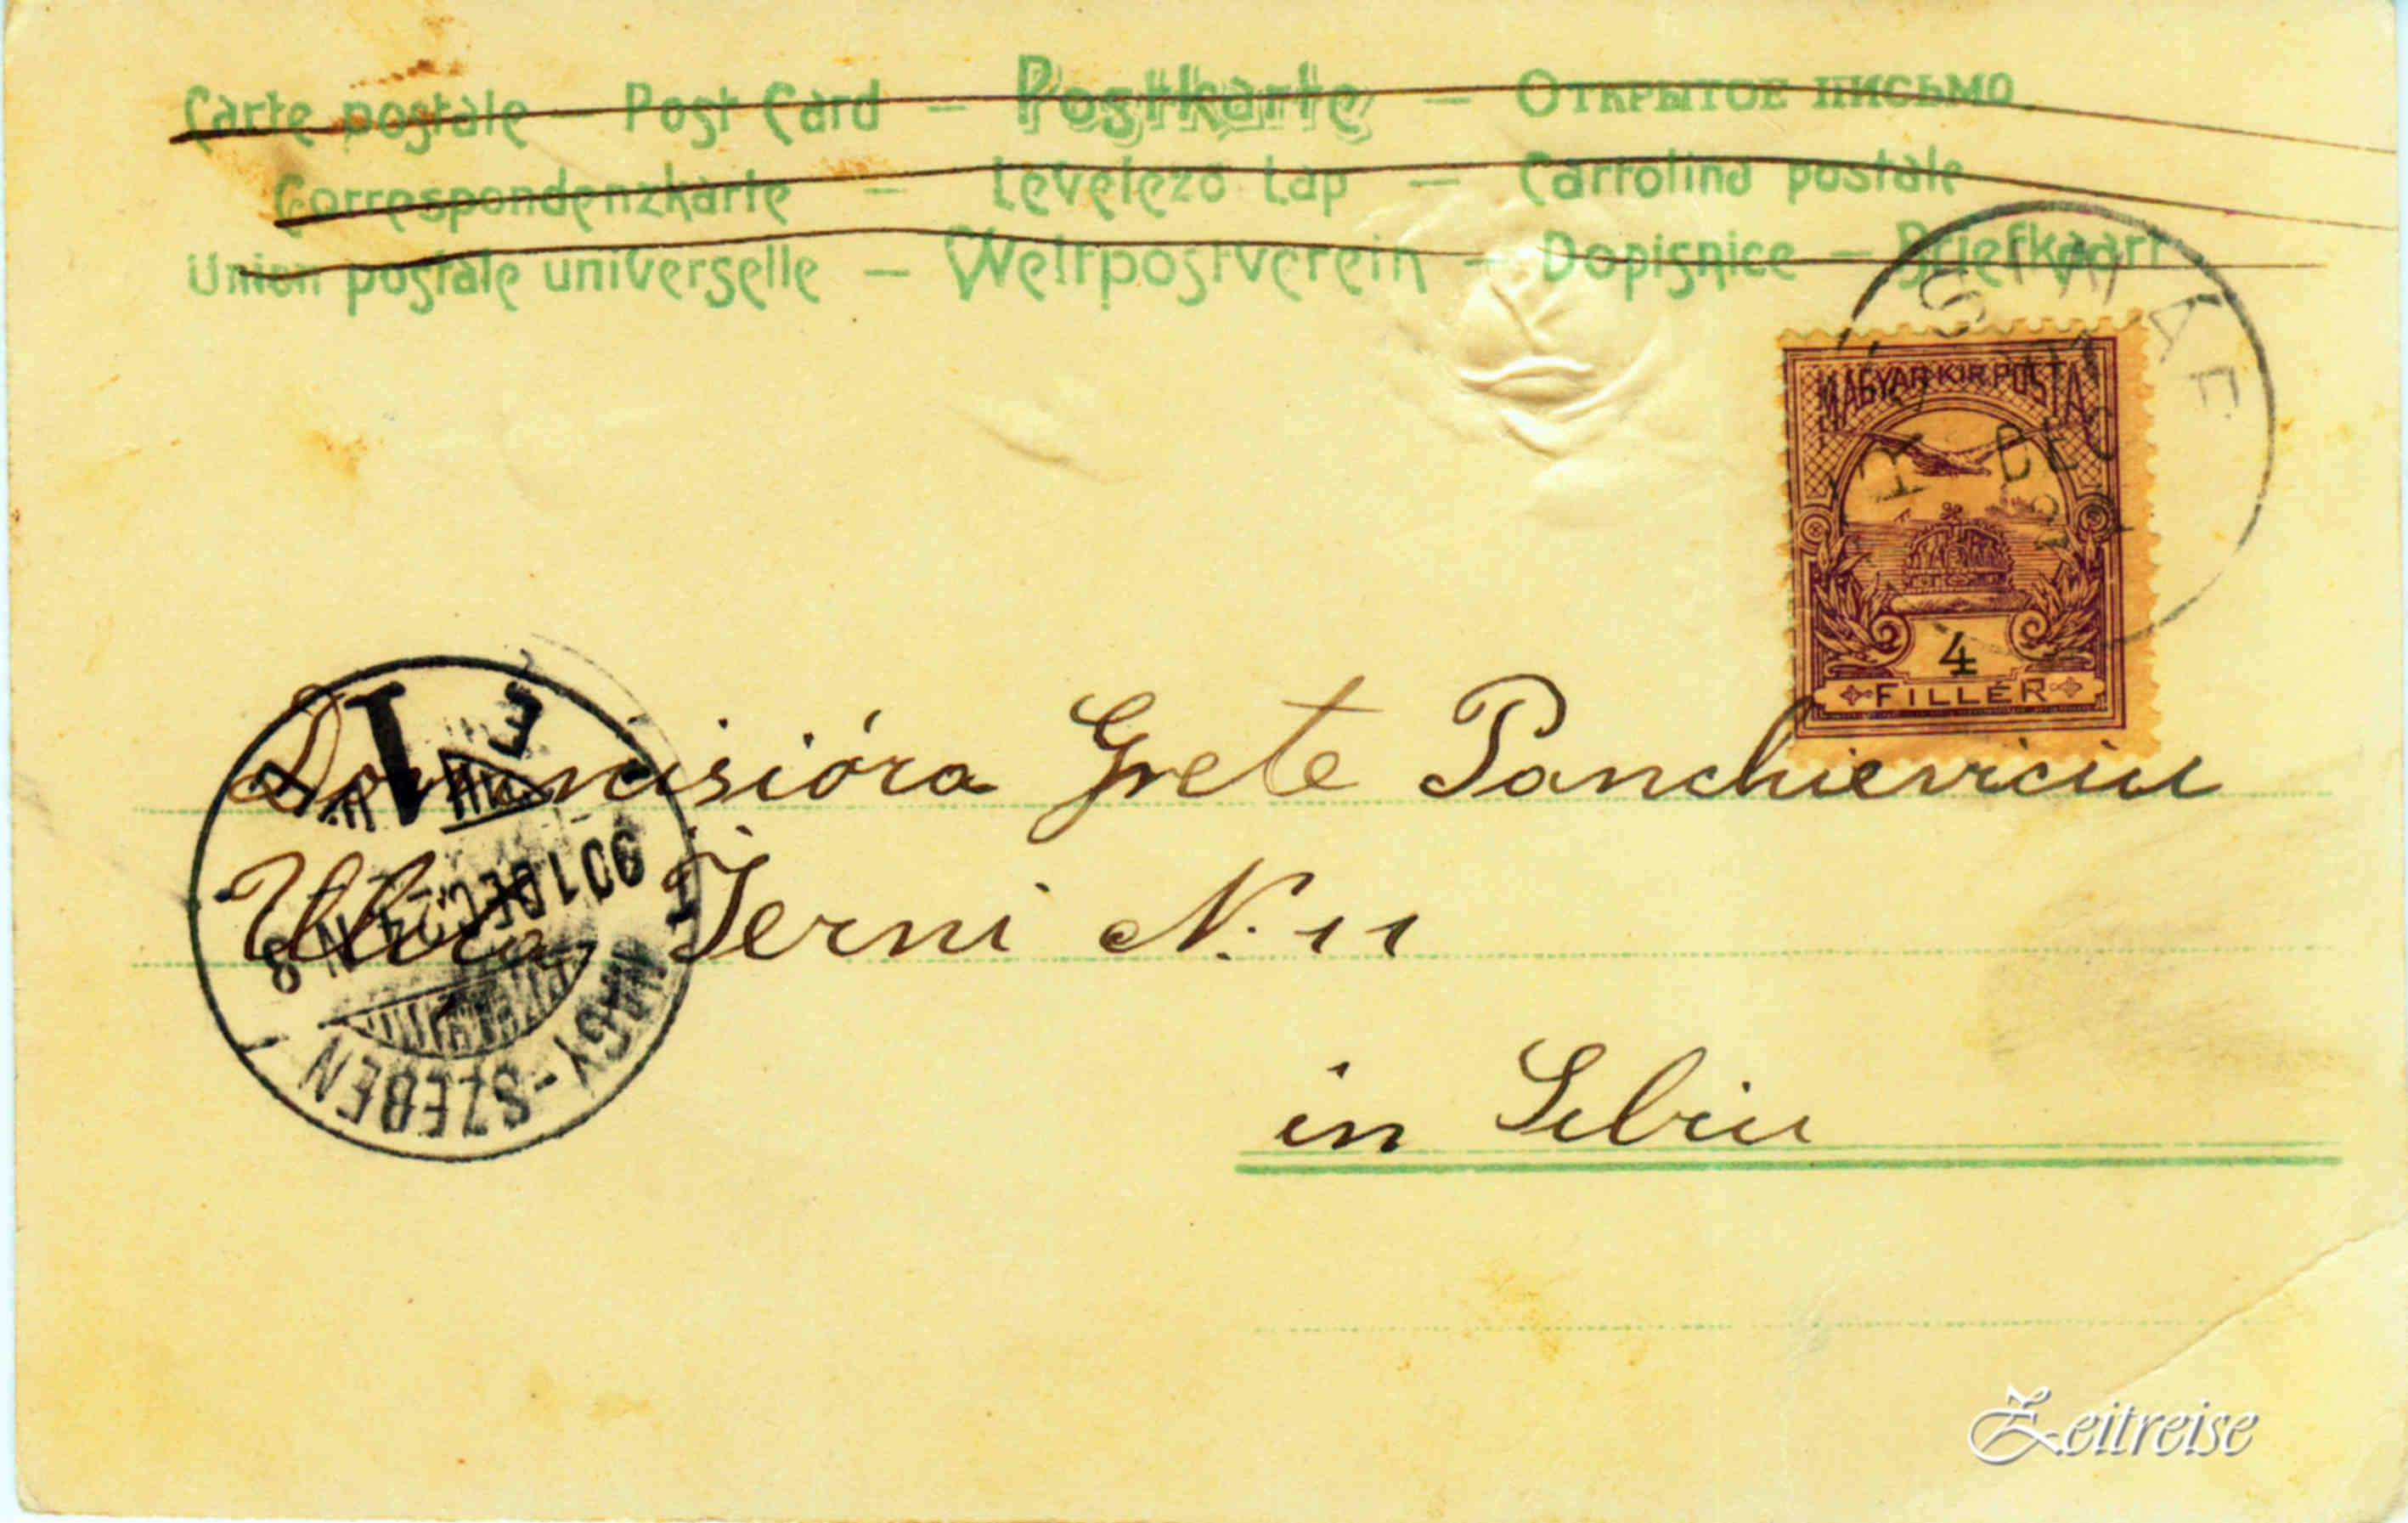 Carte postale — Post Card — Postkarte — Открытое письмо
Correspondenzkarte — Levelező Lap — Cartolina postale
Union postale universelle — Weltpostverein — Dopisnice — Briefkaart
MAGYAR KIR. POSTA
DEC
4
FILLÉR
Domnisióra Grete Panchieviciu
Ulira Ierni N. 11
in Sibiu
901 DEC 24 N 8
NAGY-SZEBEN
Zeitreise